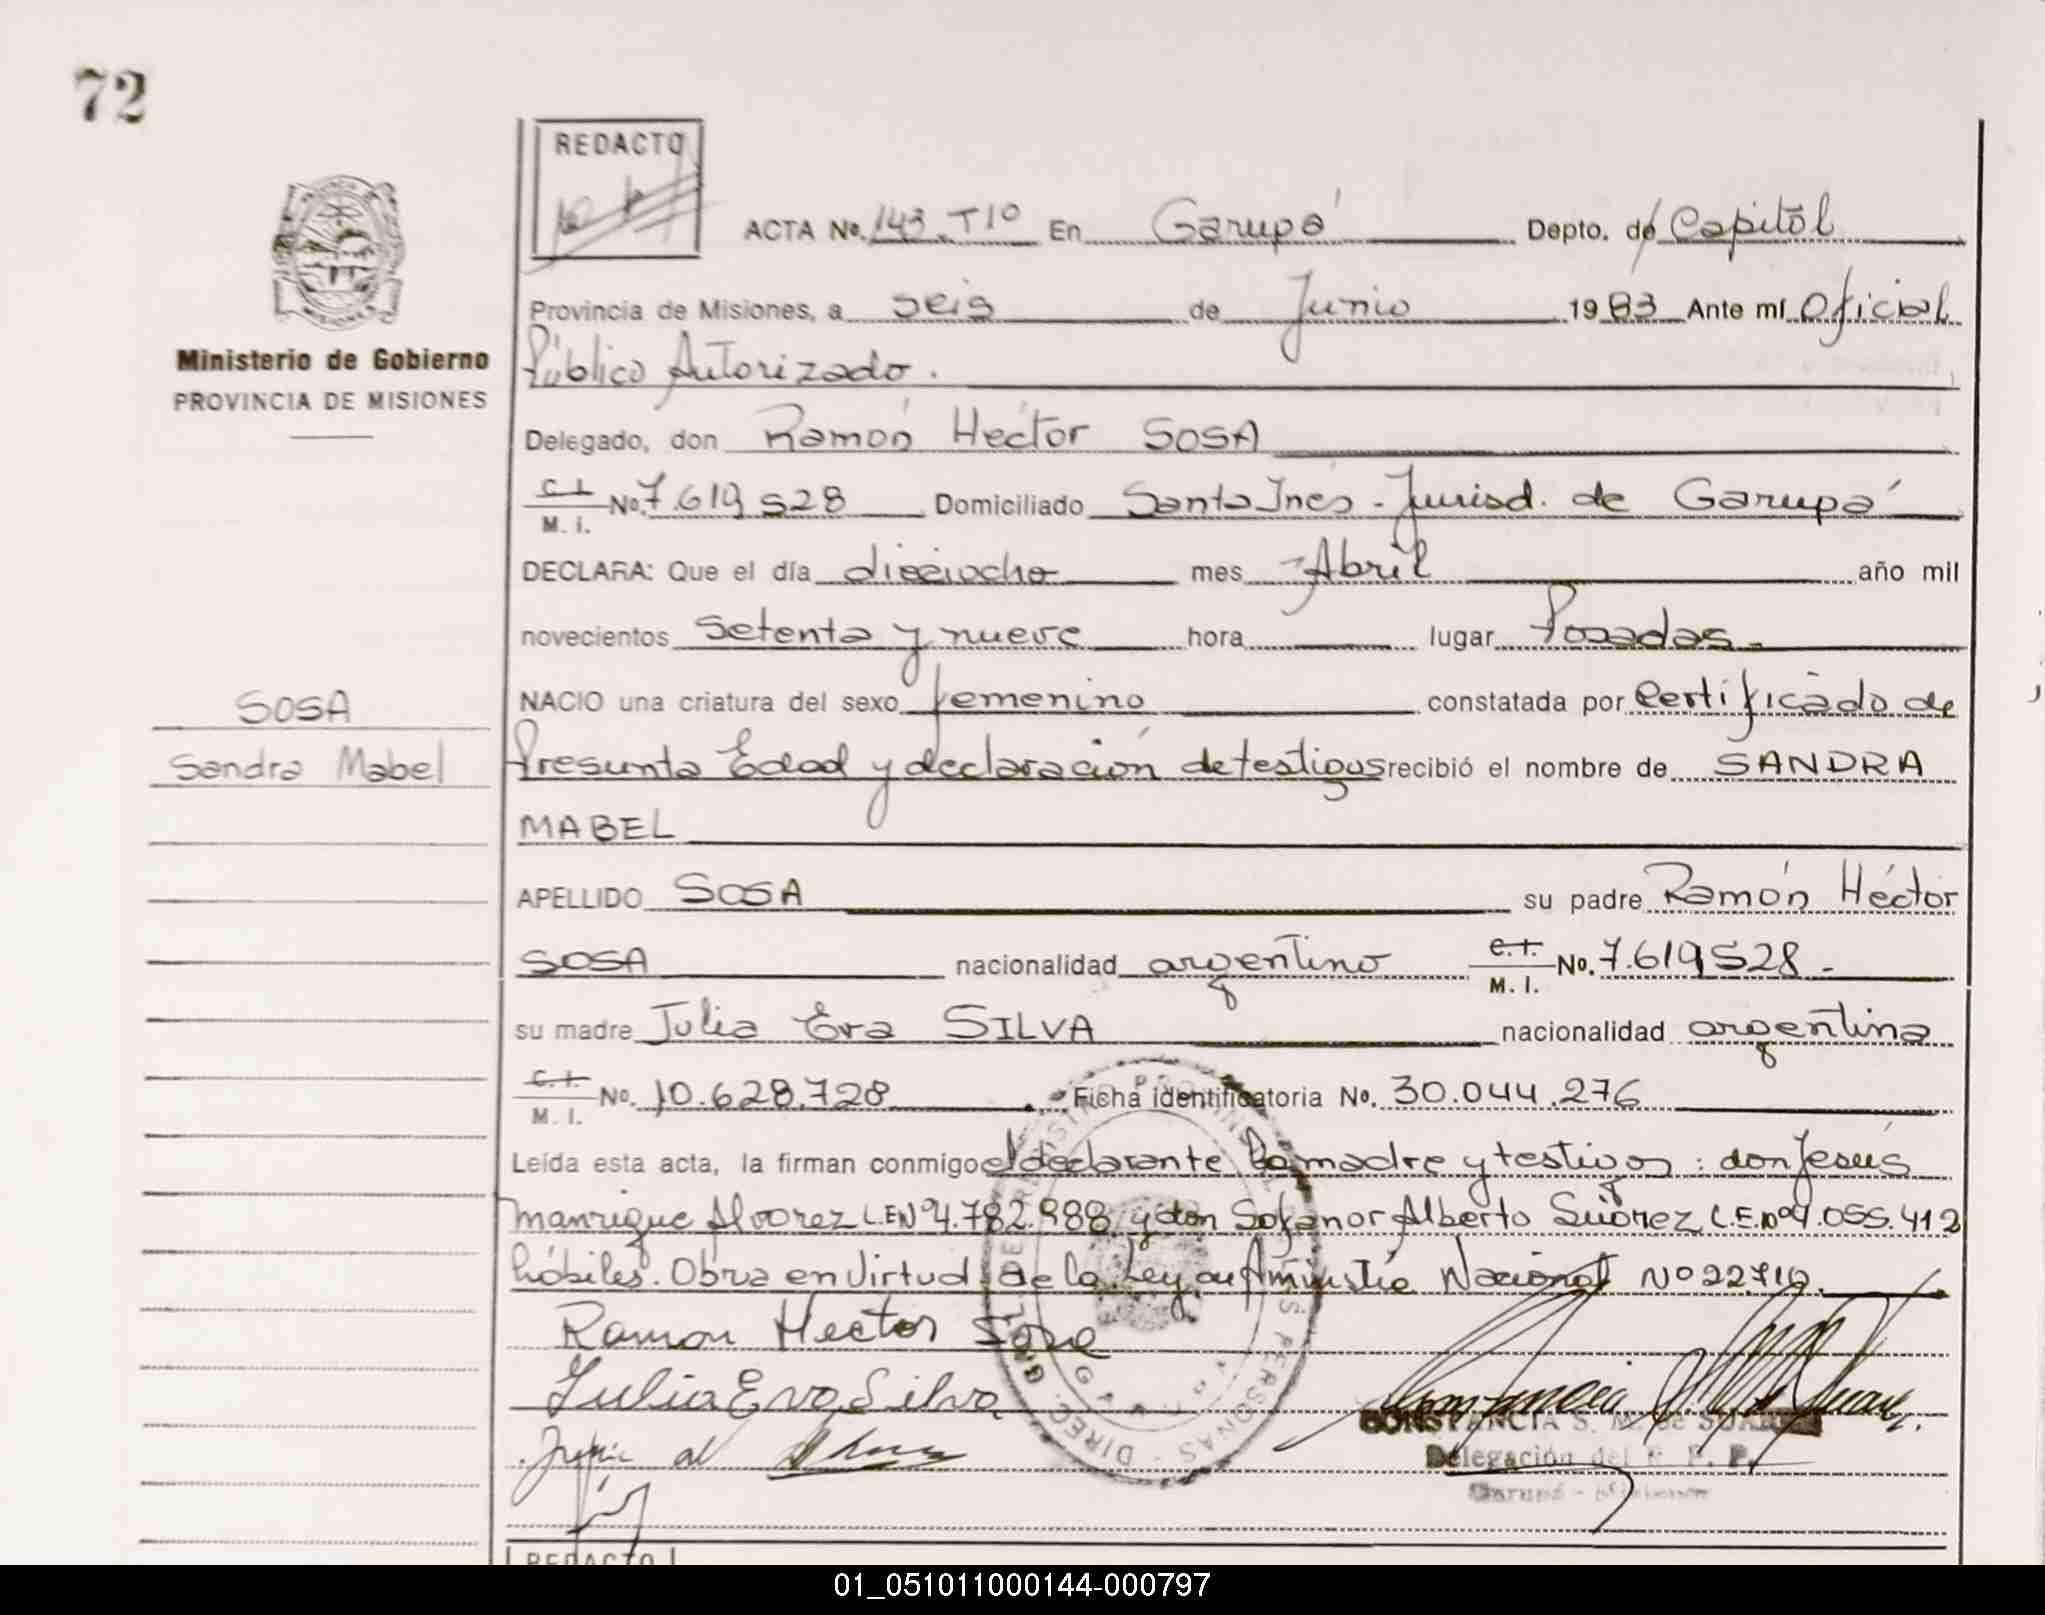 72
REDACTO
ACTA No. 143. T1º En Garupá Depto. de Capitál
Provincia de Misiones, a seis de Junio 1983 Ante mí Oficial
Público Autorizado.
Ministerio de Gobierno
PROVINCIA DE MISIONES
Delegado, don Ramón Héctor SOSA
C.I. M. I. No. 7.619528 Domiciliado Santa Inés - Jurisd. de Garupá
DECLARA: Que el día dieciocho mes Abril año mil
novecientos setenta y nueve hora lugar Posadas.
SOSA
NACIO una criatura del sexo femenino constatada por Certificado de
Sandra Mabel
Presunta Edad y declaración de testigos recibió el nombre de SANDRA
MABEL
APELLIDO SOSA su padre Ramón Héctor
SOSA nacionalidad argentino C.I. M. I. No. 7.619528.-
su madre Julia Eva SILVA nacionalidad argentina
C.I. M. I. No. 10.628.728 Ficha identificatoria No. 30.044.276
Leída esta acta, la firman conmigo el declarante la madre y testigos: don Jesús
Manrique Alvarez L.E Nº 4.782.988 y don Sofanor Alberto Suárez L.E. Nº 4.055.412
hábiles. Obra en Virtud de la Ley Amnistía Nacional Nº 22.710.
Ramon Hector Sosa
Julia Eva Silva
CONSTANCIA S. M. de
Delegación del R. P. P.
Garupá - Misiones
REDACTO
01_051011000144-000797